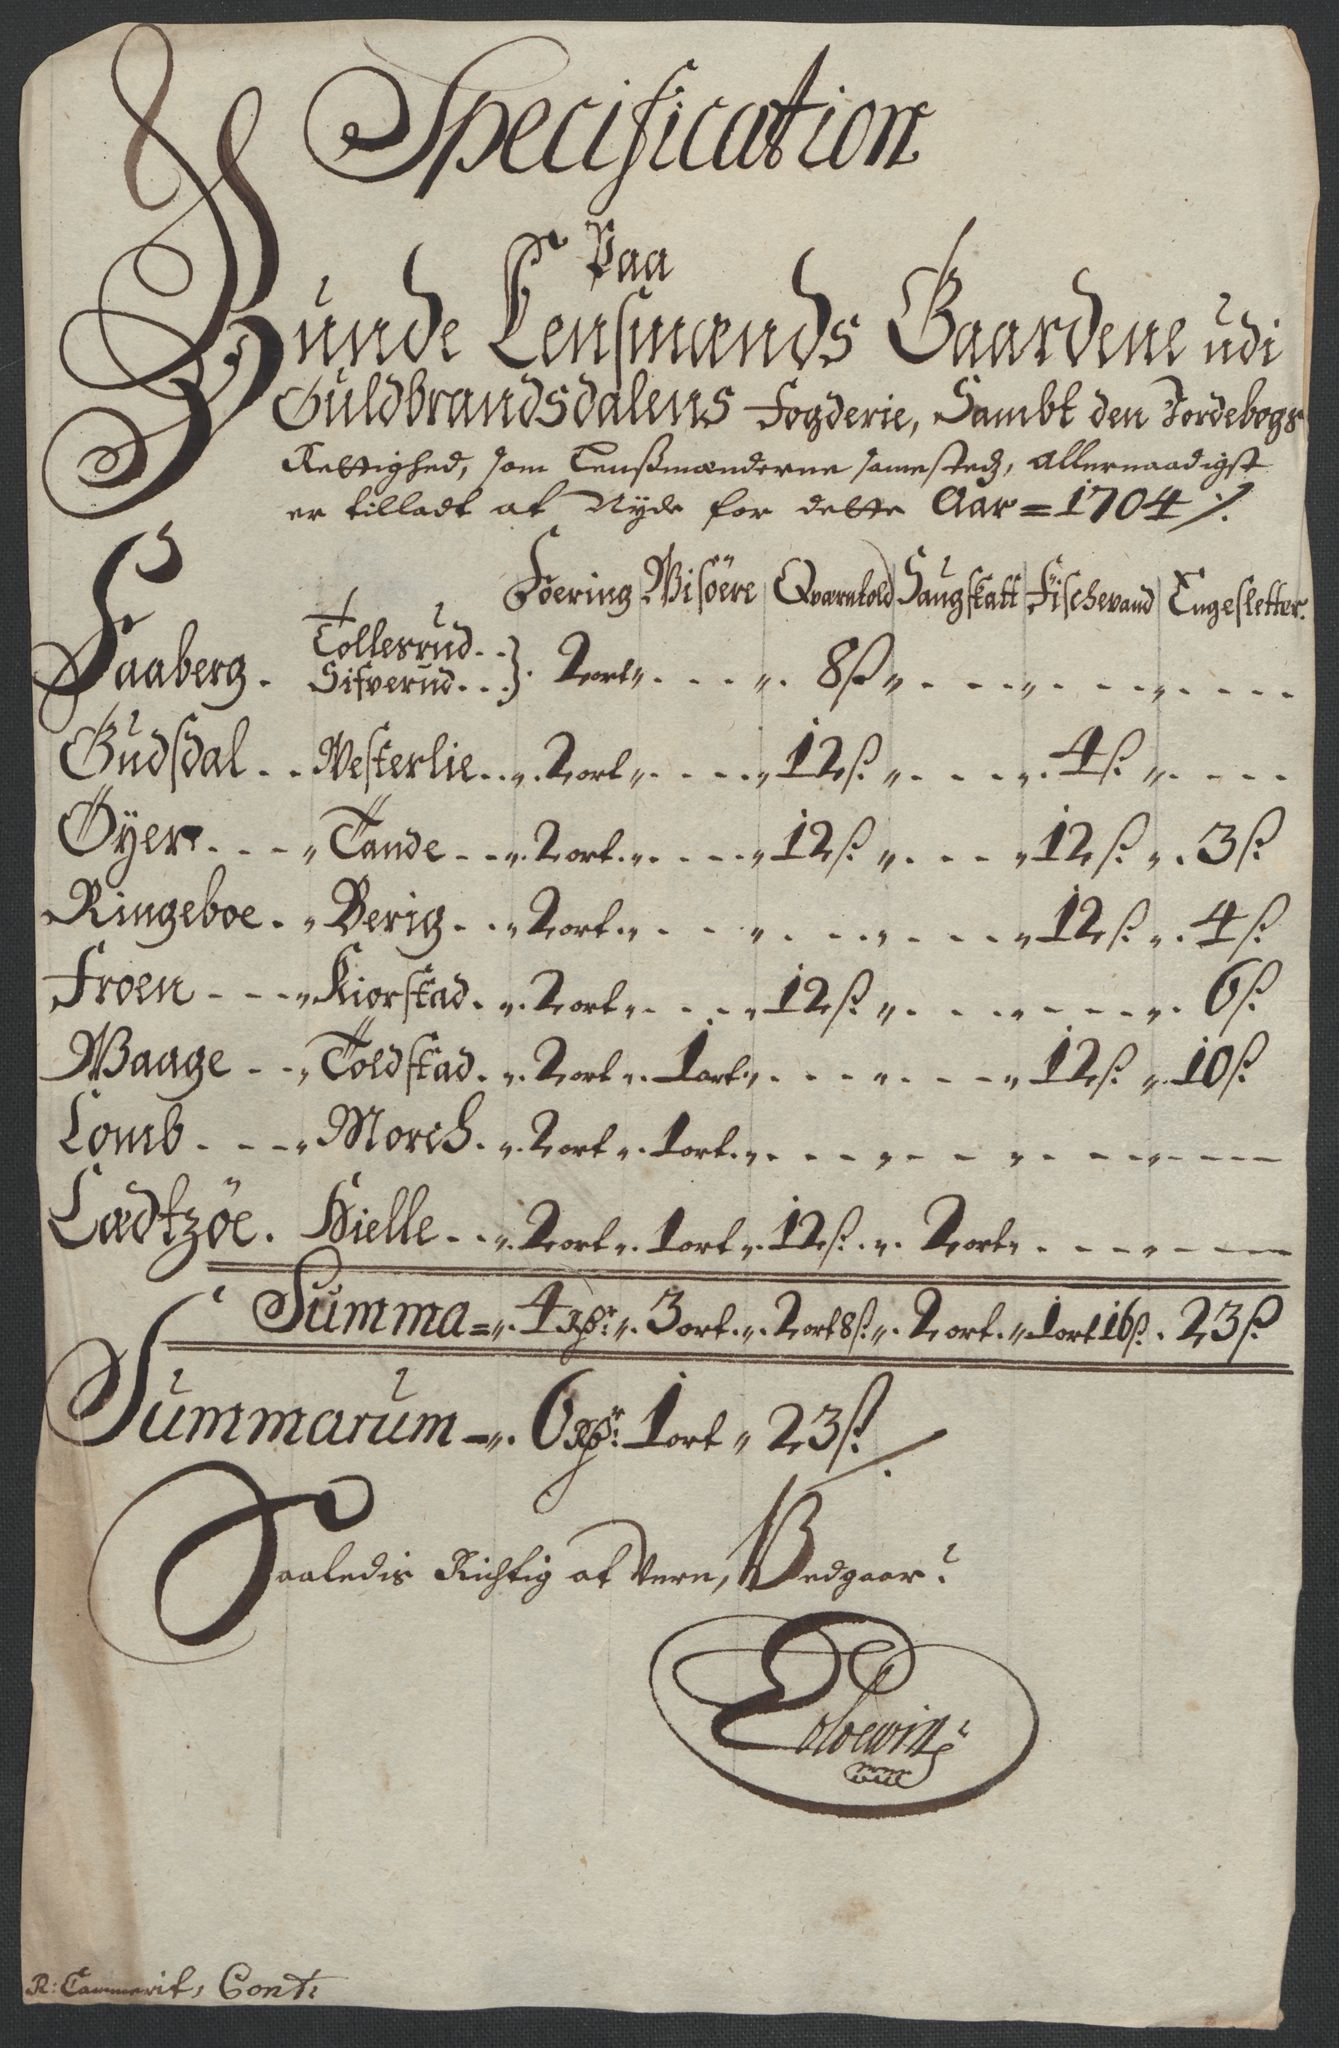 Specification
Paa
Bunde Lensmænds Gaardene udi
Guldbrandsdalens Fogderie, Sambt den Jordebogs
Rettighed, som Lensmænderne sammesteds, allernaadigst
er tilladt at Nyde for dette Aar = 1704 ⁒
Foering Wisöere Qværntold Saugskatt Fischevand Engesletter.
Faaberg. Tollesrud.. Sifverud... }. 2 ort „ . . . „. 8 ß „ . . . „ . . . „ . . .
Gudsdal.. Westerlie.. „. 2 ort „. . . . „ 12 ß. „ . . . „. 4 ß. „ . . .
Öyer. . . . „ Tande . . . „. 2 ort. „. . . . „ 12 ß. „. . . . „ 12 ß. „. 3 ß.
Ringeboe. „ Berig. . „. 2 ort. „ . . . „ . . . „ . . . „ 12 ß. „. 4 ß.
Froen . . . „ Kiorstad. „. 2 ort „. . . . „ 12 ß. „. . . . „ . . . „. 6 ß.
Waage . . „ Toldstad. „. 2 ort „. 1 ort „. . . . „. . . . „ 12 ß. „. 10 ß.
Lomb. . . . „ Morch. „. 2 ort „. 1 ort. „. . . . „ . . . „ . . . „ . . .
Lædtzöe. Hielle . . „. 2 ort „. 1 ort „. 12 ß. „. 2 ort „. . . . „ . . .
Summa = „. 4 Rdr. „. 3 ort. „. 2 ort 8 ß. „. 2 ort. „ 1 ort 16 ß. 23 ß.
Summarum = „. 6 Rdr. 1 ort „ 23 ß. /.
Saaledis Richtig at Være, Bedgaar.
R: Cammerit, Cont: